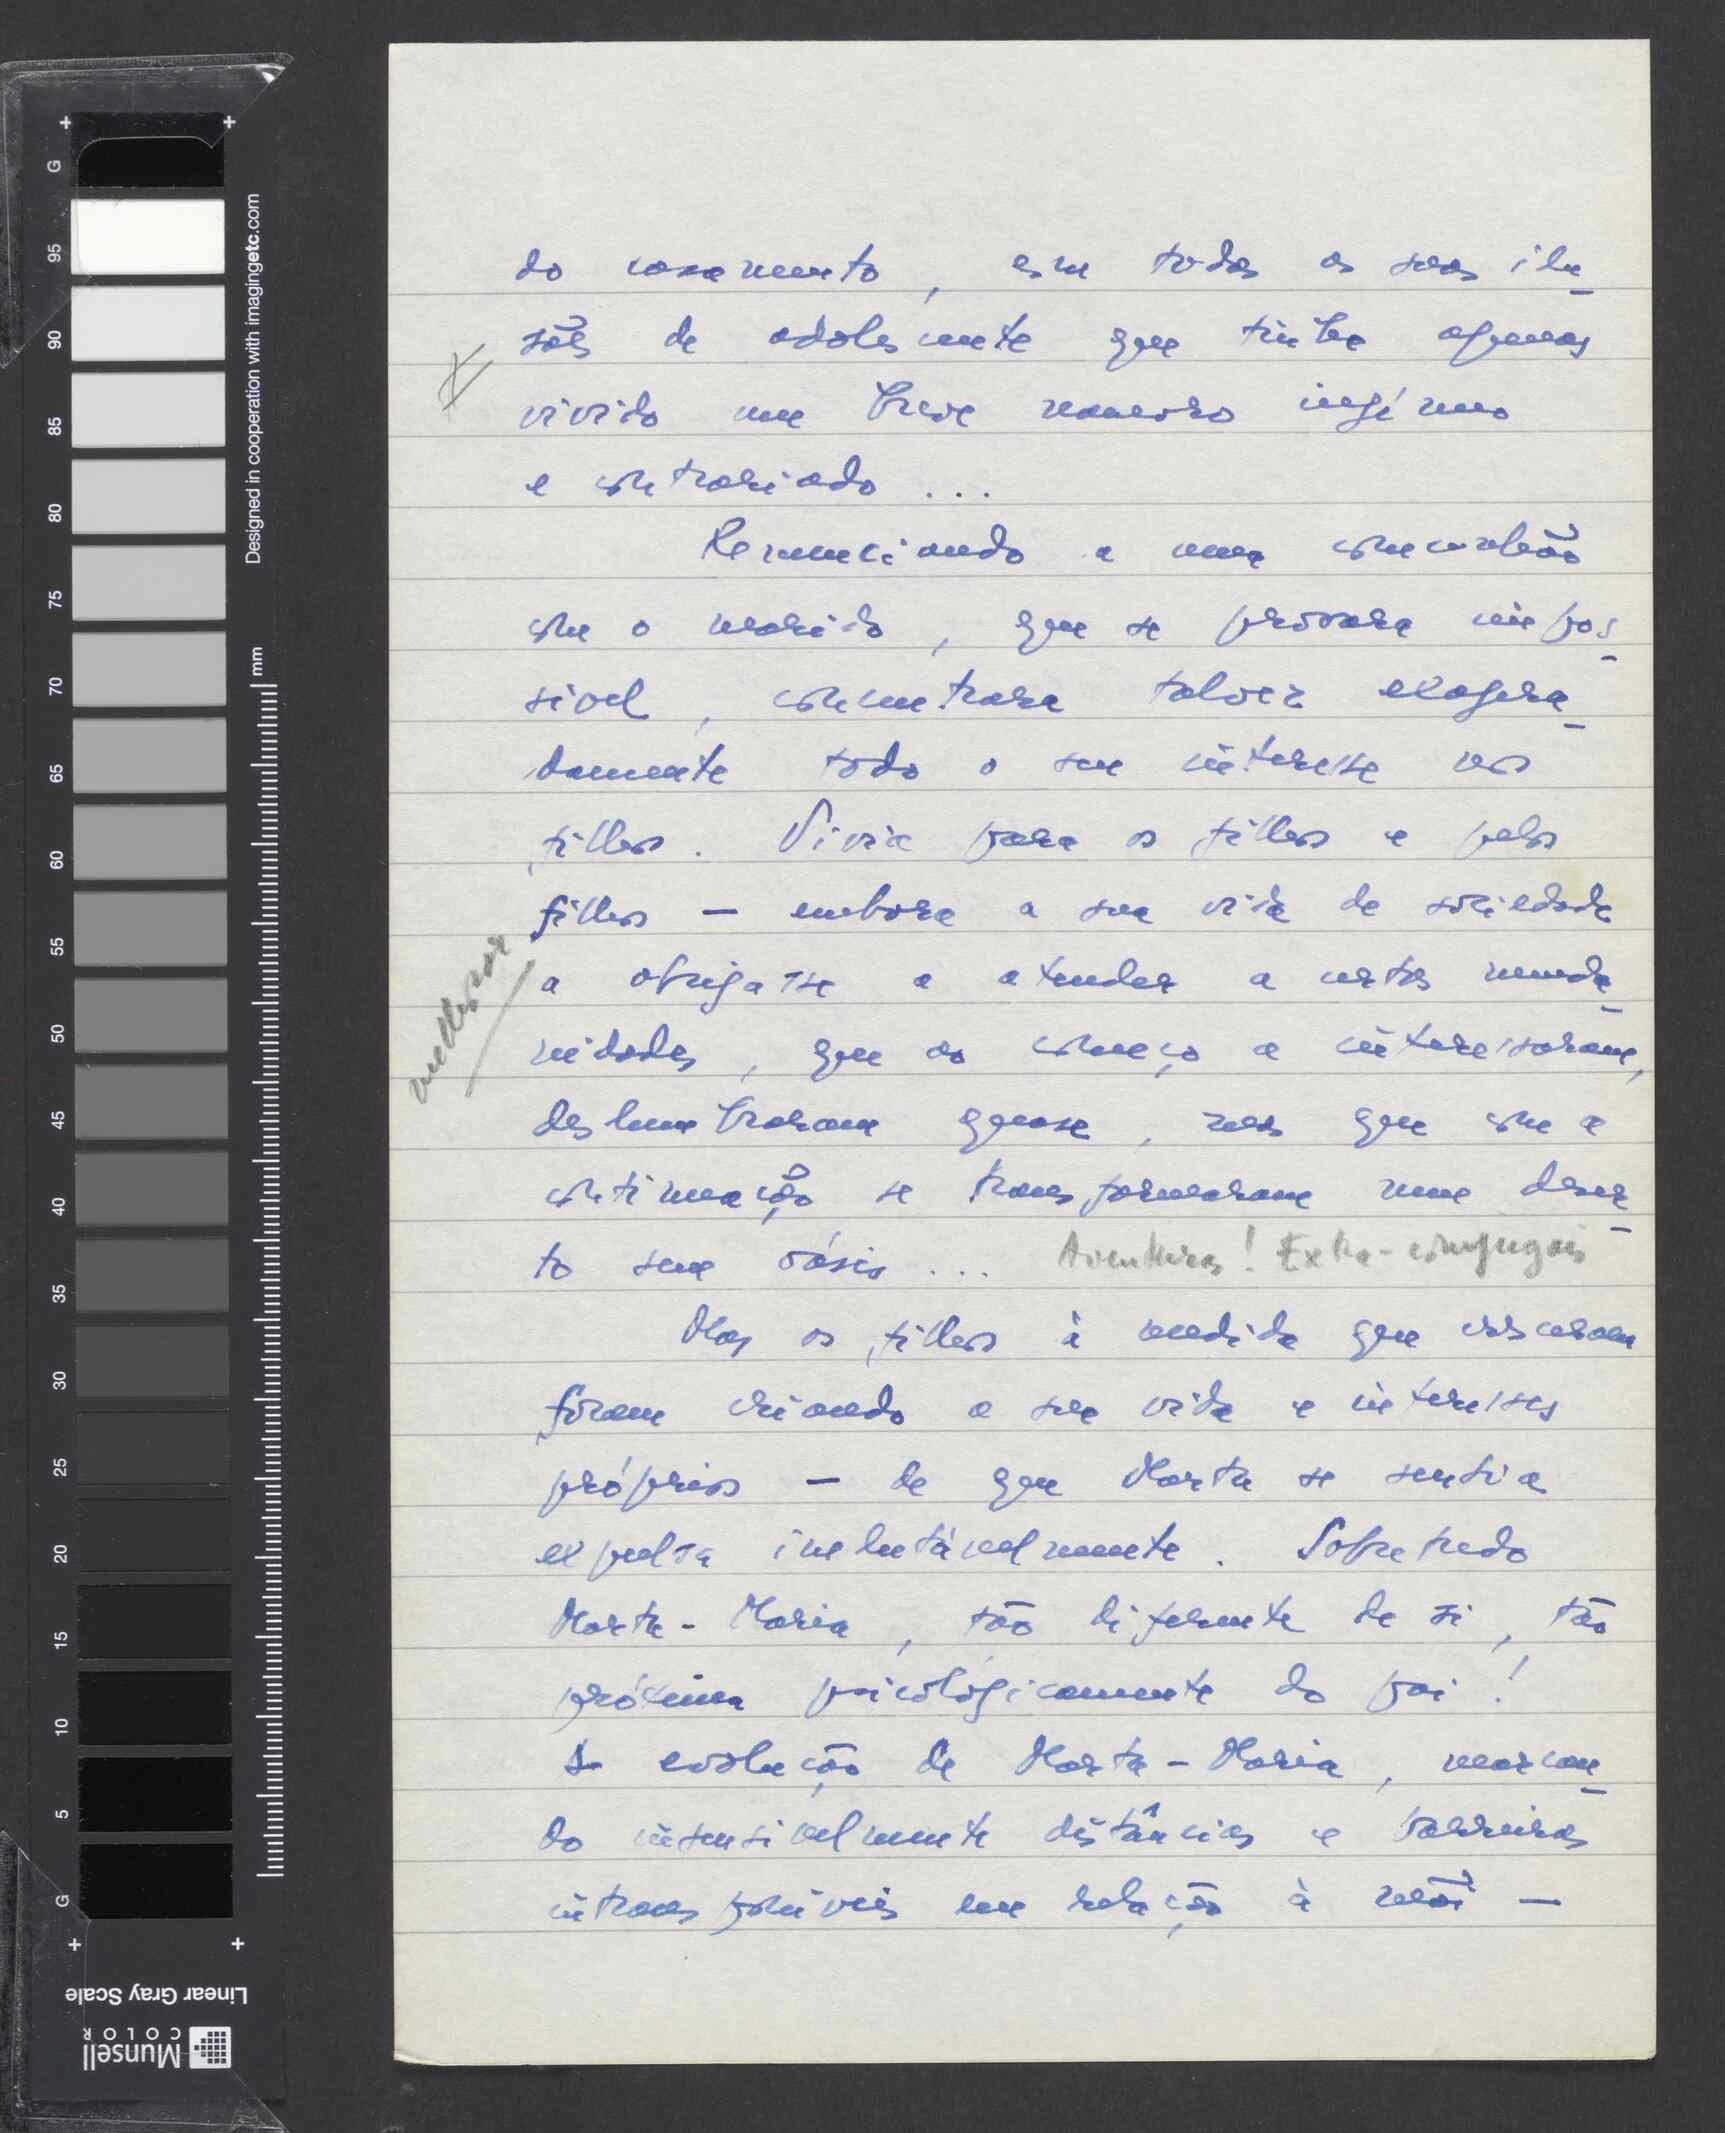 do casamento, com todas as suas ilu-
sões de adolescente que tinha apenas
vivido um breve namoro ingénuo
e contrariado ...
Renunciando a uma comunhão
com o marido, que se provara impos-
sível, concentrara talvez exagera-
damente todo o seu interesse nos
filhos. Vivia para os filhos e pelos
filhos — embora a sua vida de sociedade
a obrigasse a atender a certas munda-
nidades, que ao começo a interessaram,
deslumbraram quase, mas que com a
continuação se transformaram num deser-
to sem oásis ... Aventuras! Extra-conjugais
Mas os filhos à medida que cresceram
foram criando a sua vida e interesses
próprios — de que Marta se sentia
expulsa inelutàvelmente. Sobretudo
Marta-Maria, tão diferente de si, tão
próxima psicològicamente do pai!
A evolução de Marta-Maria, marcan-
do insensivelmente distâncias e barreiras
intransponíveis em relação à mãe —
melhorar
Designed in cooperation with imagingetc.com
mm
G 95 90 85 80 75 70 65 60 55 50 45 40 35 30 25 20 15 10 5 G
Linear Gray Scale
Munsell
COLOR